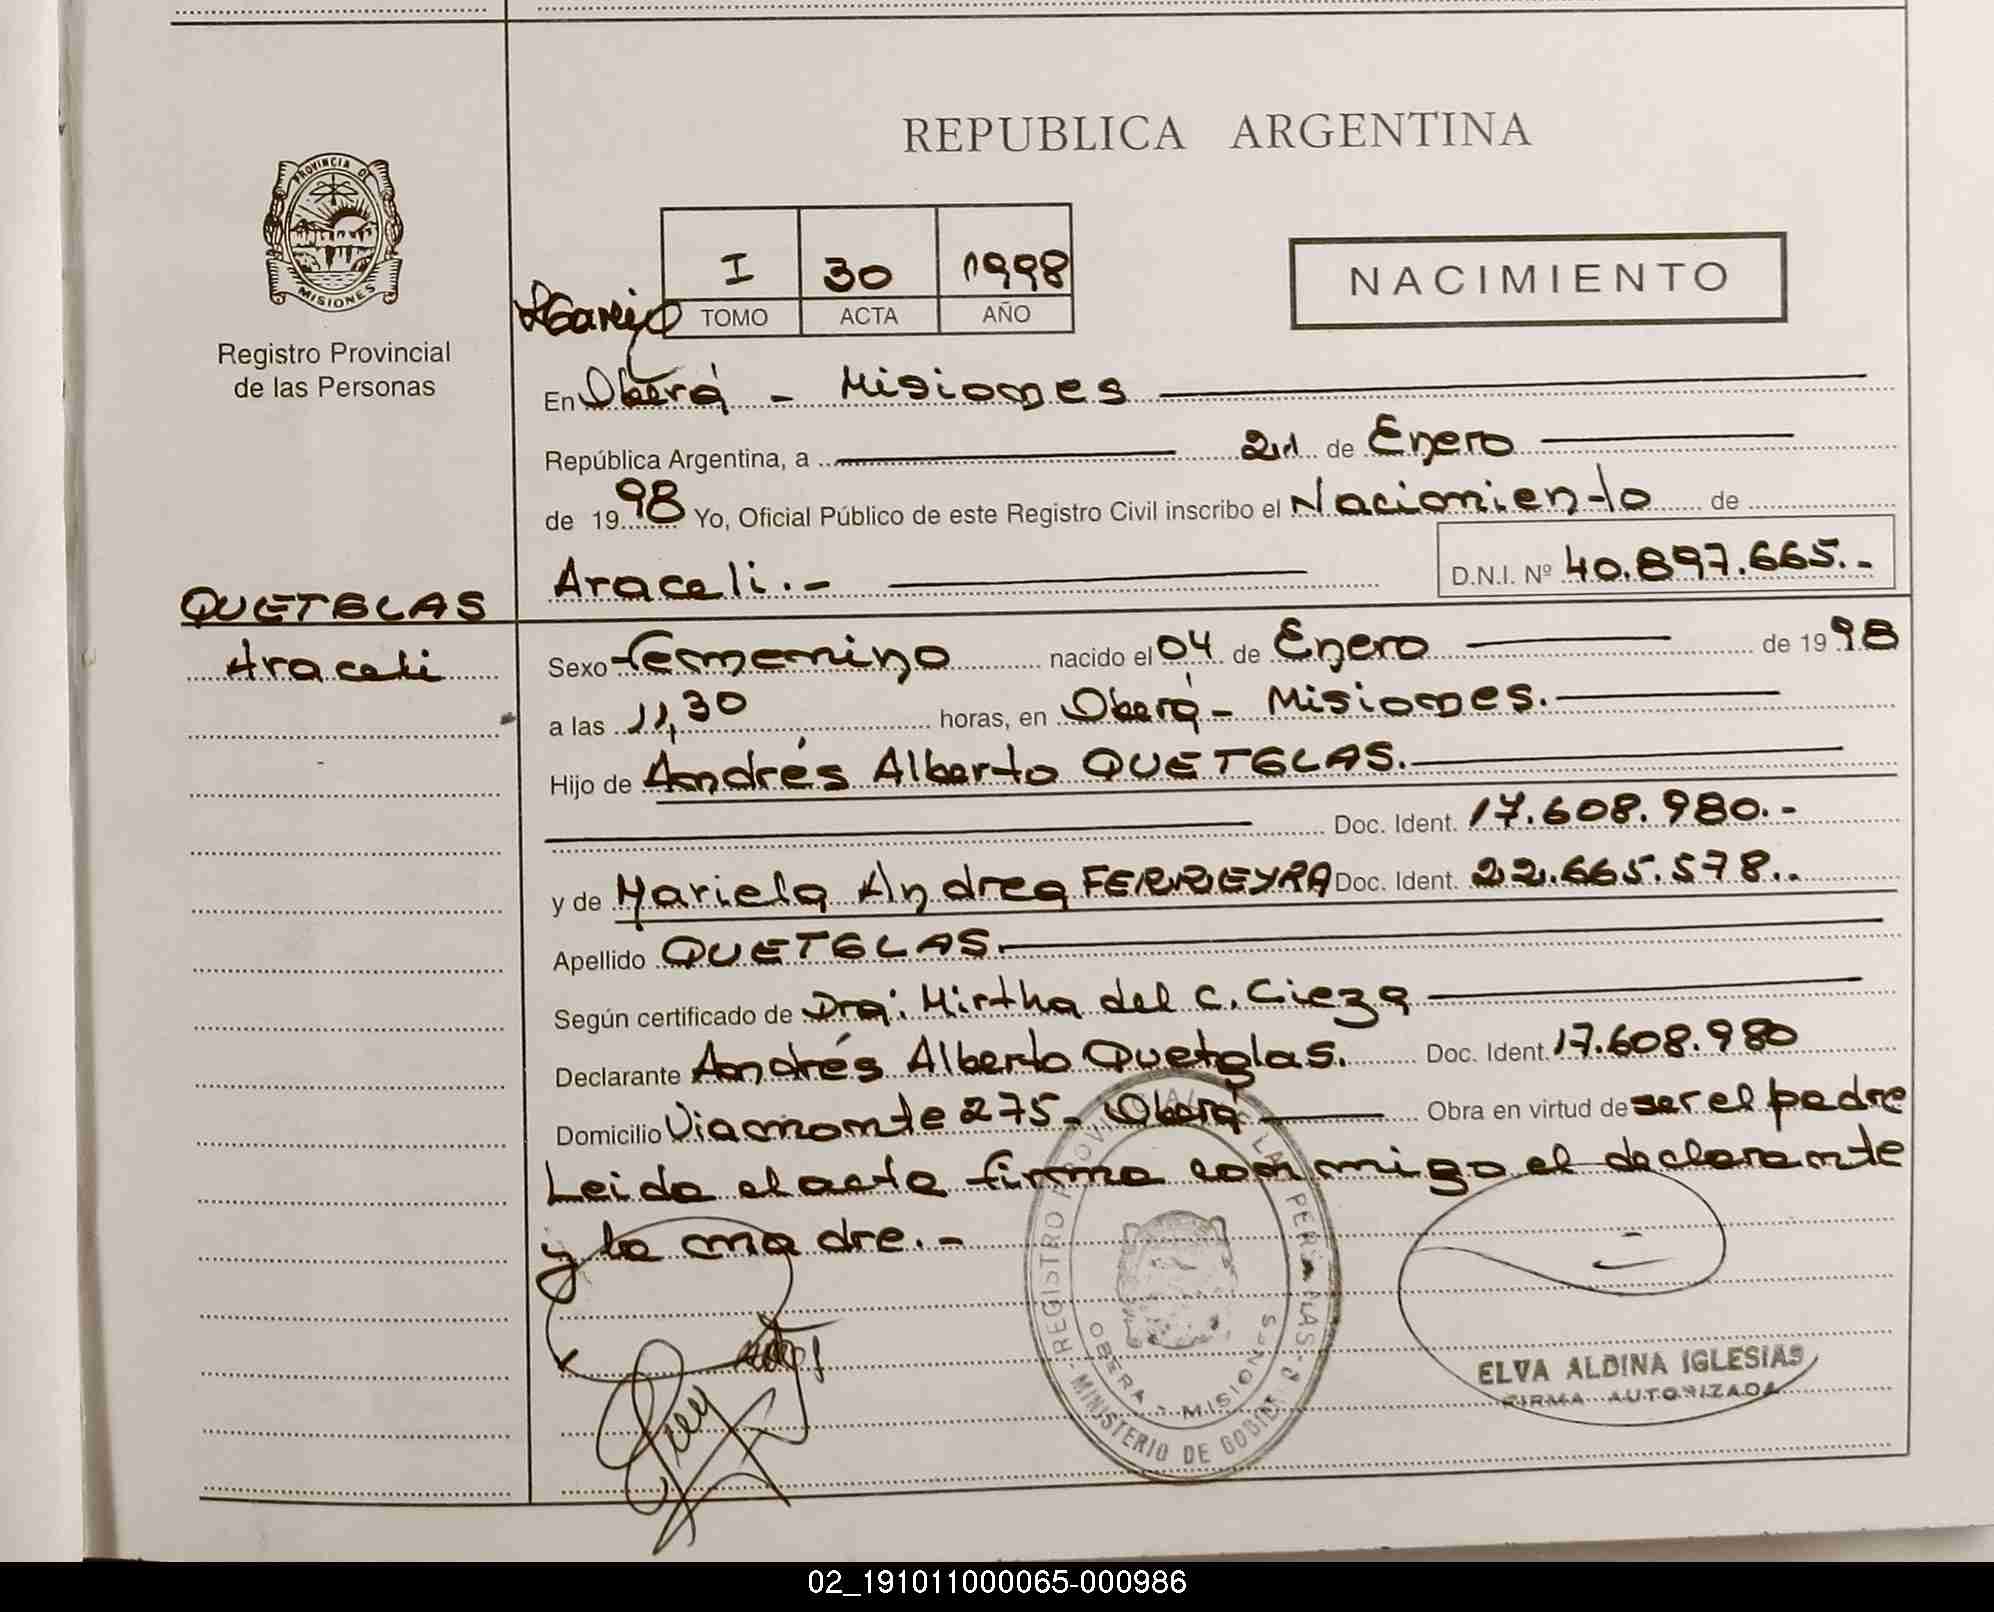 REPUBLICA ARGENTINA
PROVINCIA DE
MISIONES
Registro Provincial
de las Personas
I 30 1998
TOMO ACTA AÑO
NACIMIENTO
En Oberá - Misiones
República Argentina, a 21 de Enero
de 1998 Yo, Oficial Público de este Registro Civil inscribo el Nacimiento de
Araceli.- D.N.I. Nº 40.897.665.-
QUETGLAS
Araceli
Sexo femenino nacido el 04 de Enero de 1998
a las 11,30 horas, en Oberá - Misiones.
Hijo de Andrés Alberto QUETGLAS.
Doc. Ident. 17.608.980.-
y de Mariela Andrea FERREYRA Doc. Ident. 22.665.578..
Apellido QUETGLAS.
Según certificado de Dra: Mirtha del C. Cieza
Declarante Andrés Alberto Quetglas. Doc. Ident. 17.608.980
Domicilio Viamonte 275- Oberá Obra en virtud de ser el padre
Leida el acta firma conmigo el declarante
y la madre.-
OBERA - MISIONES
MINISTERIO DE GOBIER
ELVA ALDINA IGLESIAS
FIRMA AUTORIZADA
02_191011000065-000986